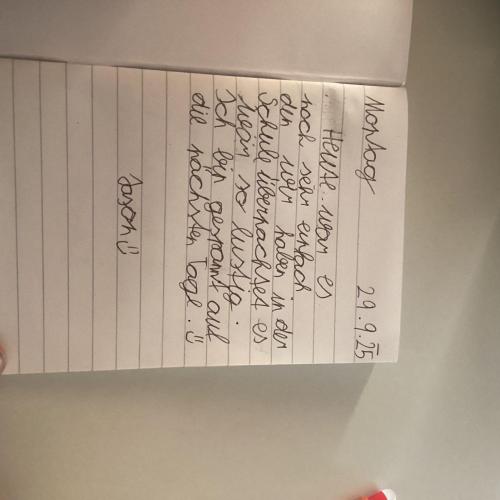 Montag 29.9.25
Heute war es
noch sehr einfach
den wir haben in der
Schule übernachtet es
war so lustig.
Ich bin gespannt auf
die nächsten Tage. :)
Jason :)